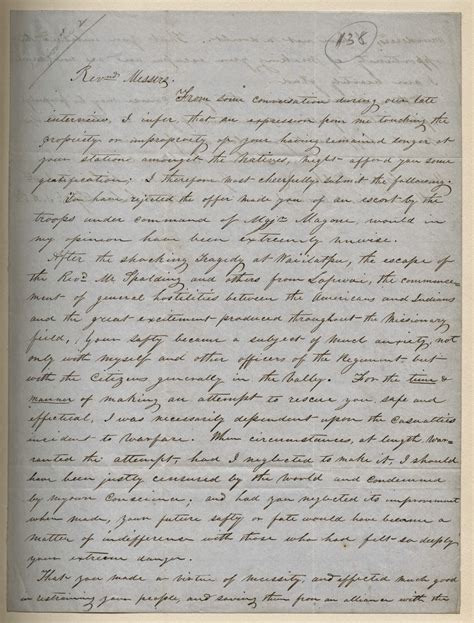 138
Revnd Messrs.
From some conversation during our late
interview, I infer, that an expression from me touching the
propriety or impropriety of your having remained longer at
your stations amongst the Natives, might afford you some
gratification; I therefore most cheerfully submit the following.
To have rejected the offer made you of an escort by the
troops under command of Majr Magone, would in
my opinion have been extremely unwise.
After the shocking Tragedy at Waiilatpu, the escape of
the Revd Mr Spalding and others from Lapwai, the commence-
ment of general hostilities between the Americans and Indians
and the great excitement produced throughout the Missionary
field, your safty became a subject of much anxiety, not
only with myself and other officers of the Regiment but
with the Citizens generally in the Valley. For the time &
manner of making an attempt to rescue you, safe and
effectual, I was necessarily dependent upon the Casualties
incident to Warfare. When circumstances, at length war-
ranted the attempt, had I neglected to make it, I should
have been justly censured by the world and Condemned
by my own Conscience; and had you neglected its improvement
when made, your future safty or fate would have became a
matter of indifference with those who had felt so deeply
your extreme danger.
That you made a virtue of necessity, and effected much good
in restraining your people, and saving them from an alliance with the